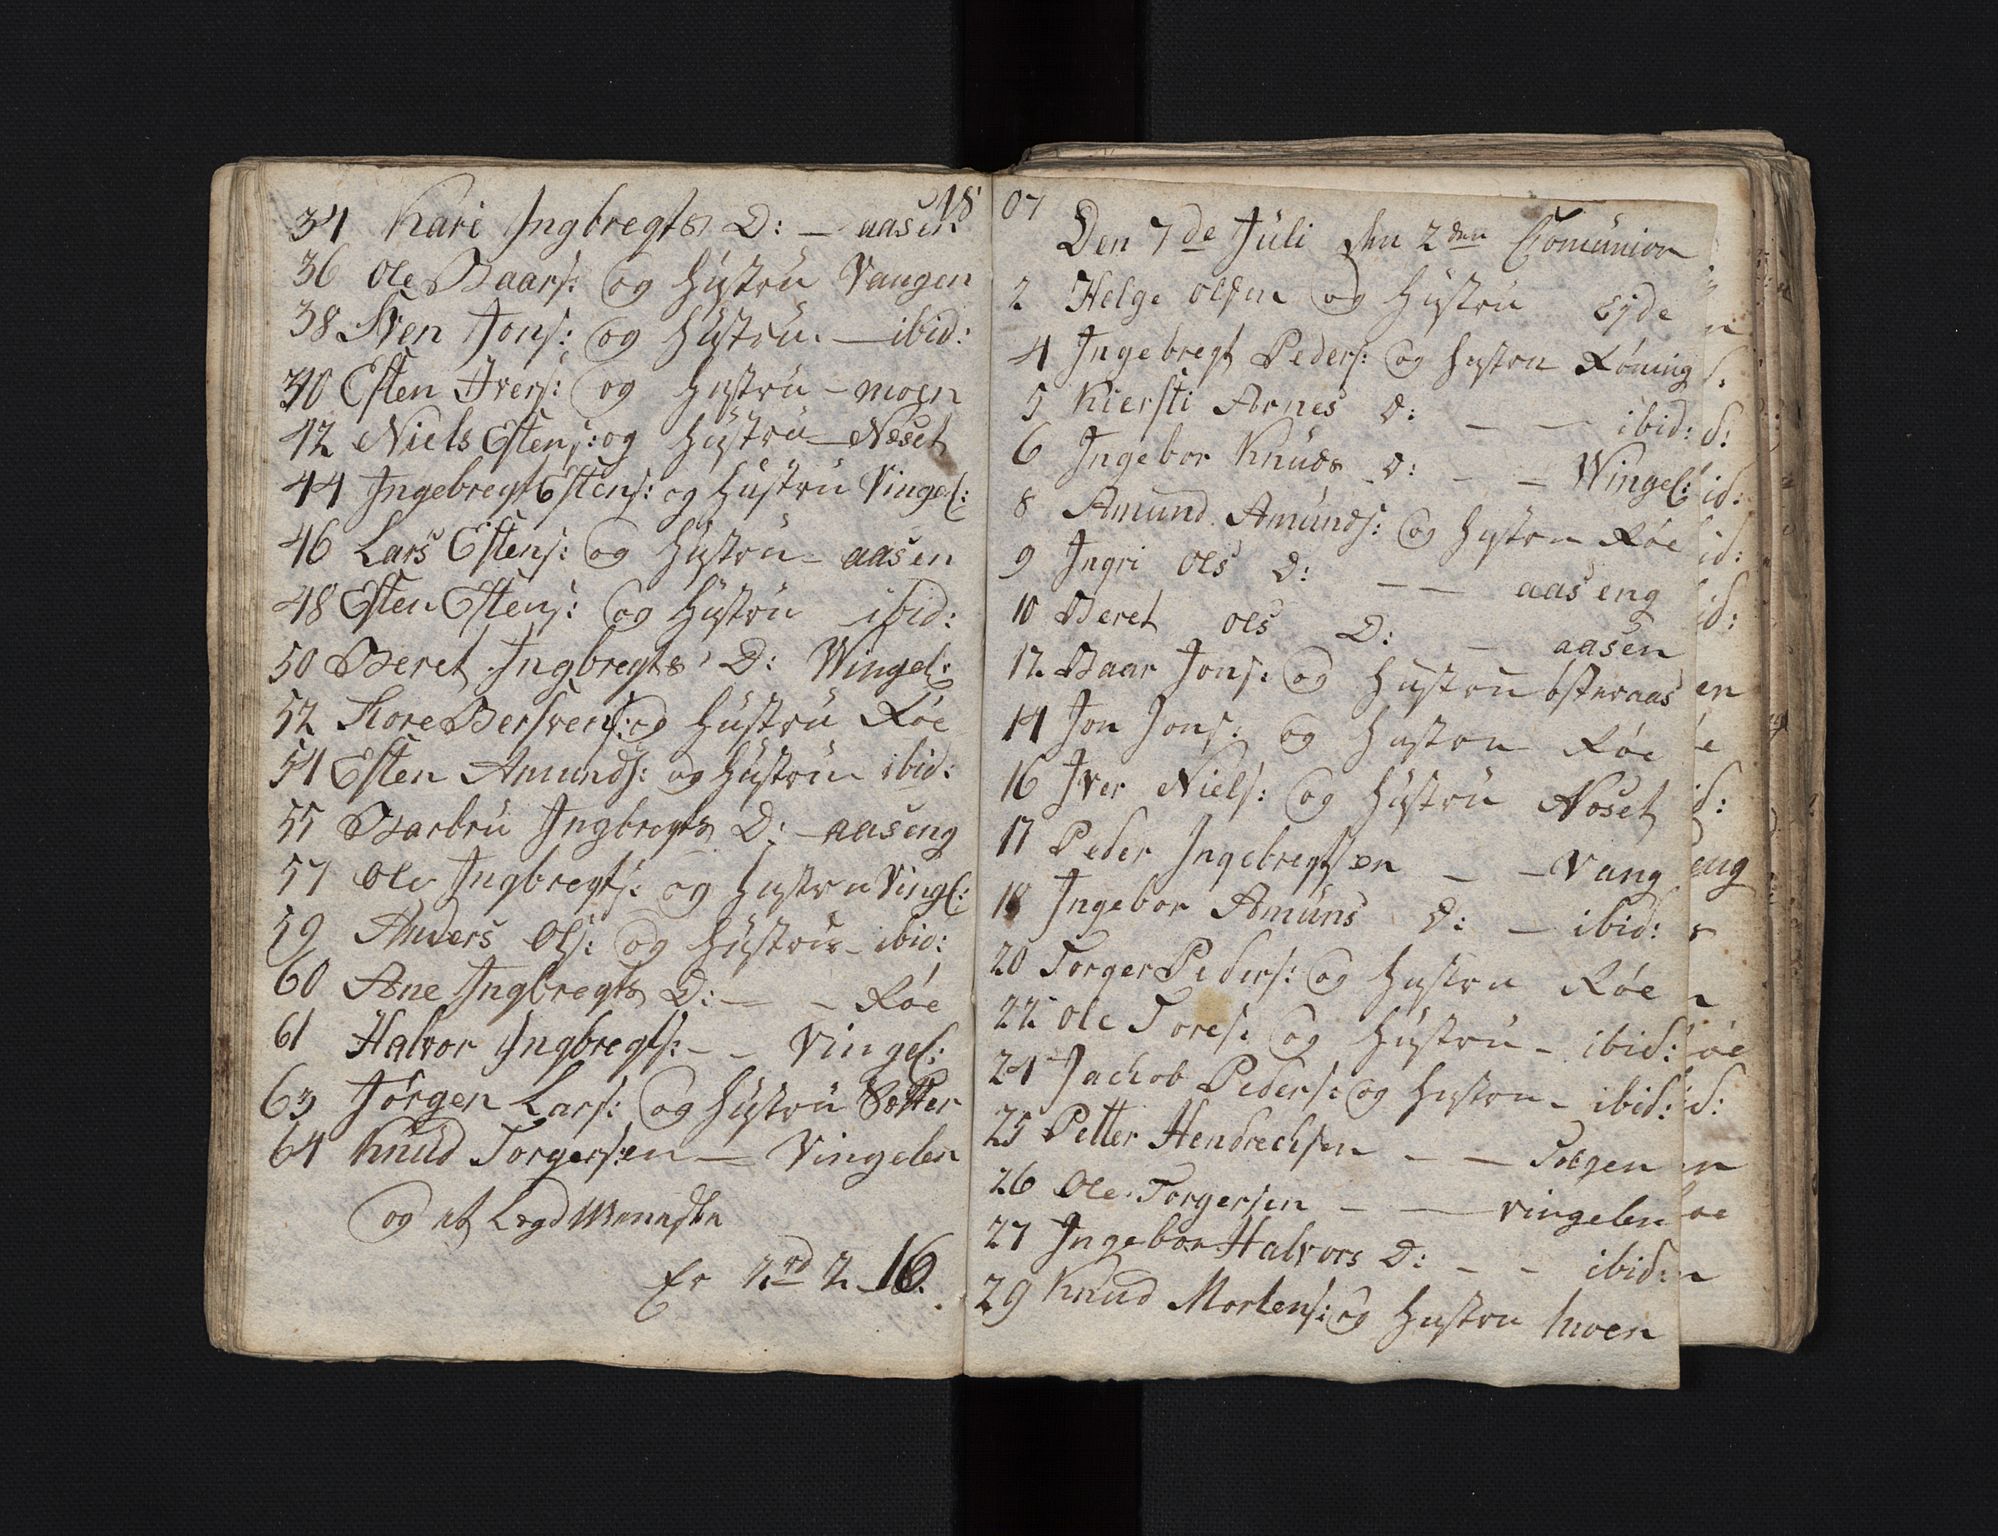 18
34 Kari Ingbregts D: – aasen
36 Ole Baars: og Hustru Vangen
38 Sven Jons: og Hustru. – ibid:
40 Esten Ivers: og Hustru – moen
42 Niels Estens: og Hustru – Næset
44 Ingebregt Estens: og Hustru Vingel:
46 Lars Estens: og Hustru – aasen
48 Esten Estens: og Hustru ibid:
50 Beret Ingbregts D: Wingel:
52 Tore Bersvens: og Hustru Røe
54 Esten Amunds: og Hustru ibid:
55 Barbru Ingbregts D: – aaseng
57 Ole Ingbregts: og Hustru Vingl:
59 Anders Ols: og Hustru – ibid:
60 Ane Ingbregts D: – – Røe
61 Halvor Ingbregts: – – Vingel:
63 Jörgen Lars: og Hustru Sætter
64 Knud Torgersen – Vingelen
og et Legd Menneske
Er 2 rd 2 – 16.
07
Den 7de Juli den 2den Comunion
2 Helge Olsen og Hustru Eide
4 Ingebregt Peders: og Hustru Røning
5 Kiersti Arnes D: – – ibid:
6 Ingebor Knuds D: – – Wingel:
8 Amund Amunds: og Hustru Røe
9 Ingri Ols D: – – aaseng
10 Beret Ols D: – aasen
12 Baar Jons: og Hustru østeraas
14 Jon Jons: og Hustru Røe
16 Iver Niels: og Hustru Noset
17 Peder Ingebregtsen – – Vang
18 Ingebor Amuns D: – ibid:
20 Torger Peders: og Hustru Røe
22 Ole Tores: og Hustru – ibid:
24 Jachob Peders: og Hustru – ibid:
25 Petter Hendrechsen – – Tolgen
26 Ole Torgersen – – vingelen
27 Ingebor Halvors D: – – ibid:
29 Knud Mortens: og Hustru hroen